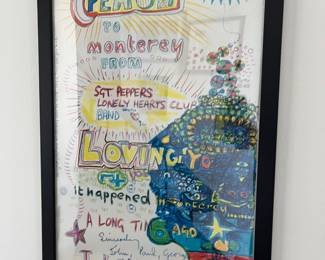 PEACE
TO
monterey
FROM
SGT PEPPERS
LONELY HEARTS CLUB
BAND
LOVING YO
it happened
in monterey
A LONG TIME AGO
Sincerely
John, Paul, George